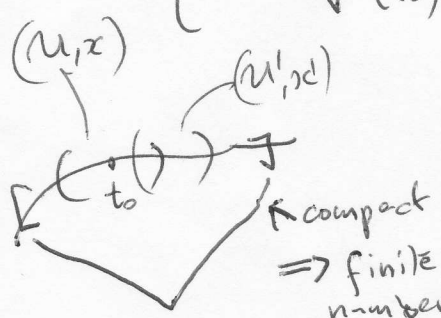 (U,x)
(U',x')
( t₀ ( ) )
compact
⇒ finite
number